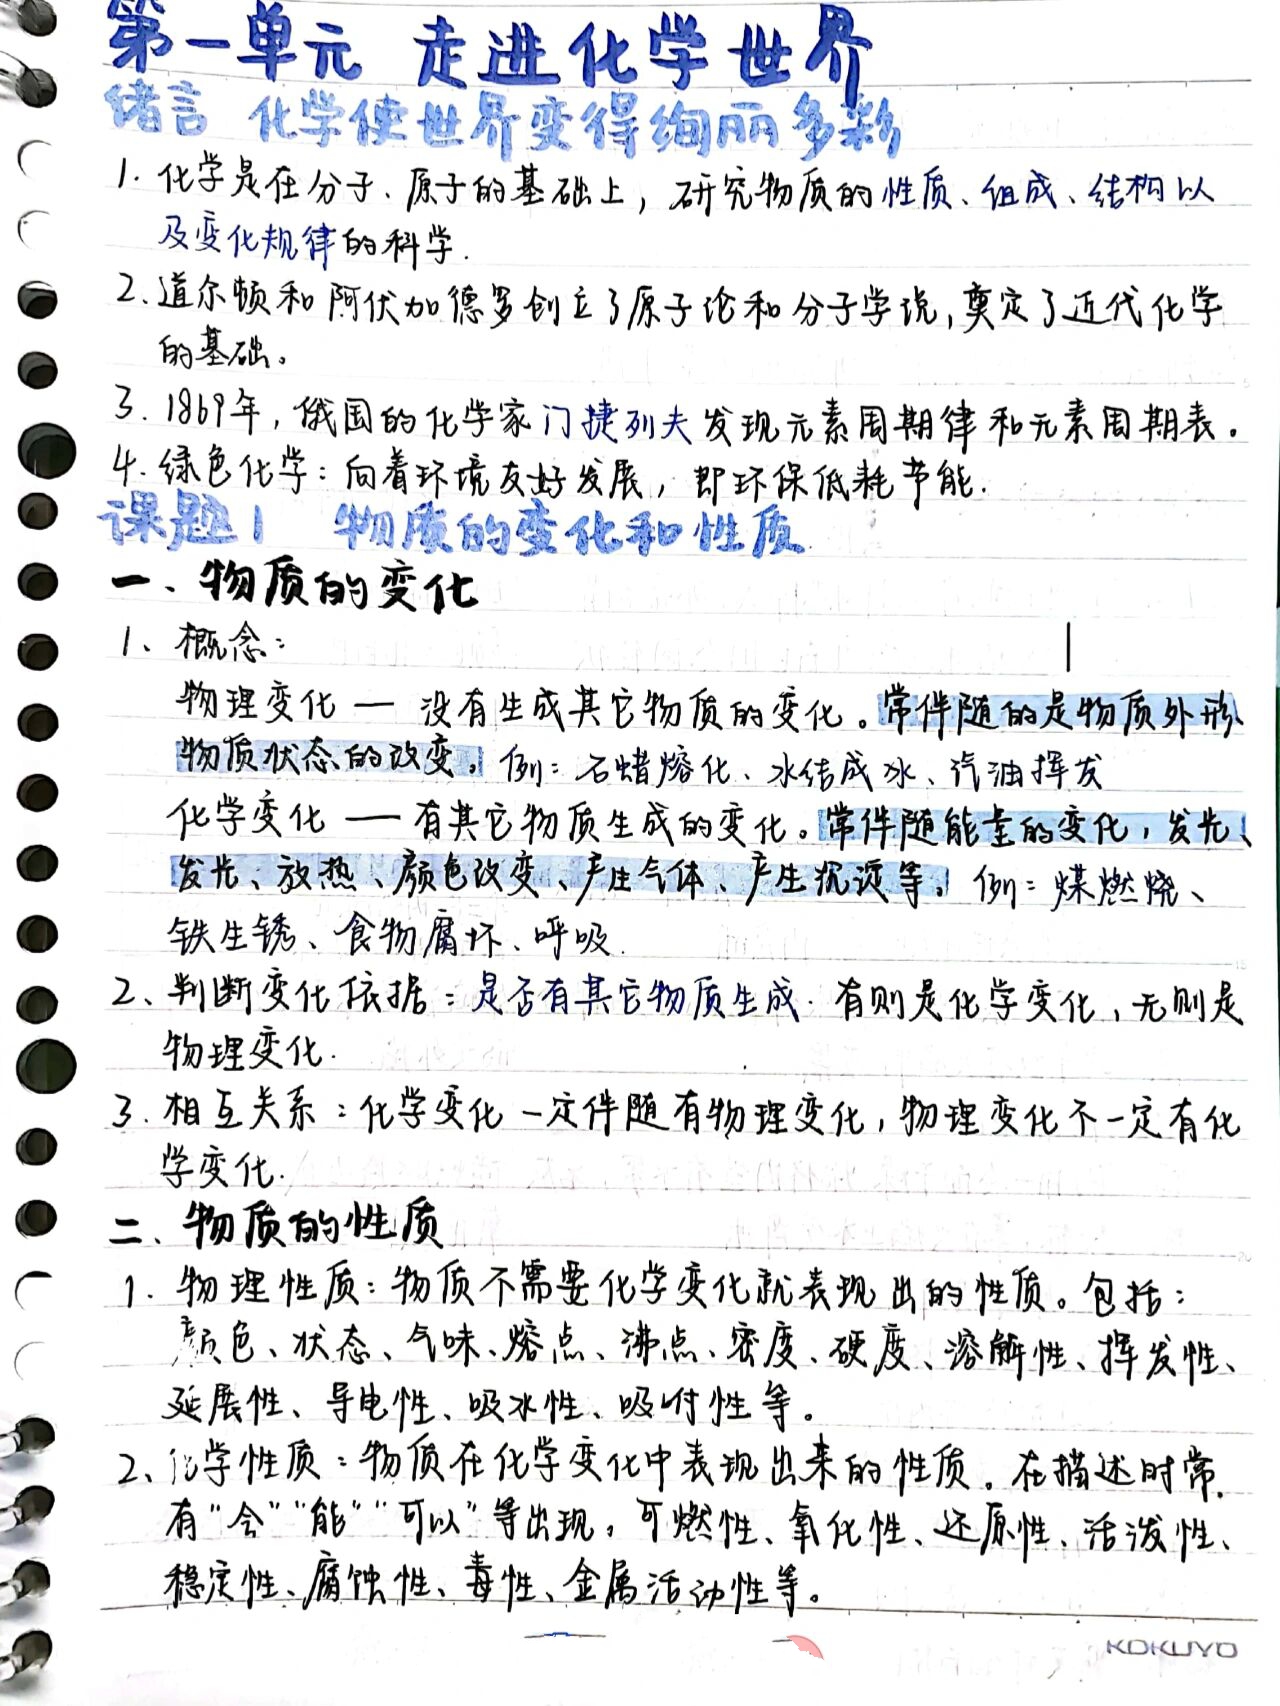 第一单元 走进化学世界
绪言 化学使世界变得绚丽多彩
1. 化学是在分子、原子的基础上，研究物质的性质、组成、结构以
及变化规律的科学.
2. 道尔顿和阿伏加德罗创立了原子论和分子学说，奠定了近代化学
的基础。
3. 1869年，俄国的化学家门捷列夫发现元素周期律和元素周期表。
4. 绿色化学：向着环境友好发展，即环保低耗节能.
课题1 物质的变化和性质
一、物质的变化
1、概念：
物理变化 — 没有生成其它物质的变化。常伴随的是物质外形、
物质状态的改变。例：石蜡熔化、水结成冰、汽油挥发
化学变化 — 有其它物质生成的变化。常伴随能量的变化，发光、
发光、放热、颜色改变、产生气体、产生沉淀等。例：煤燃烧、
铁生锈、食物腐坏、呼吸.
2、判断变化依据：是否有其它物质生成. 有则是化学变化，无则是
物理变化.
3. 相互关系：化学变化一定伴随有物理变化，物理变化不一定有化
学变化.
二、物质的性质
1. 物理性质：物质不需要化学变化就表现出的性质。包括：
颜色、状态、气味、熔点、沸点、密度、硬度、溶解性、挥发性、
延展性、导电性、吸水性、吸附性等。
2、化学性质：物质在化学变化中表现出来的性质。在描述时常
有“会”“能”“可以”等出现。可燃性、氧化性、还原性、活泼性、
稳定性、腐蚀性、毒性、金属活动性等。
KOKUYO